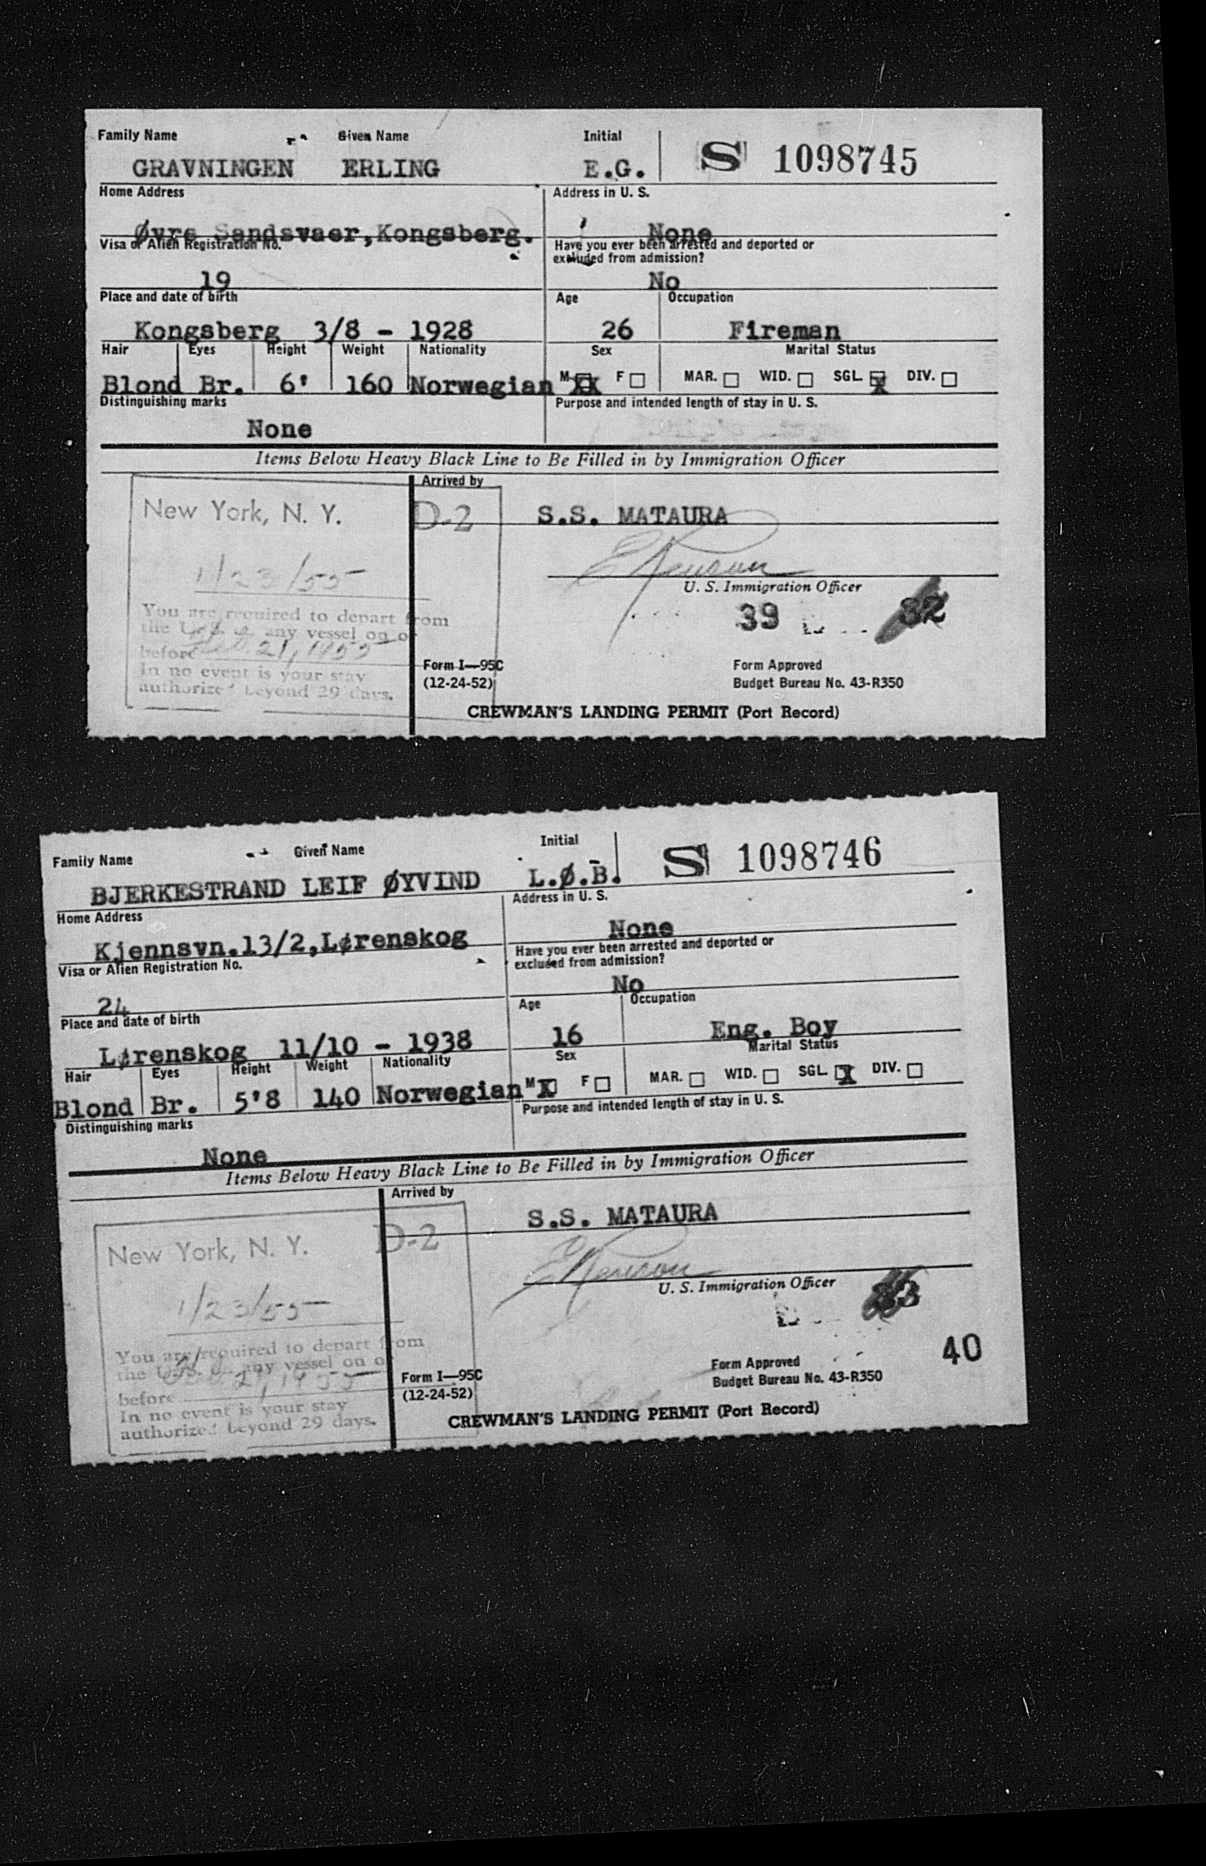 Family Name Given Name Initial
GRAVNINGEN ERLING E.G. S 1098745
Home Address Address in U. S.
Øvre Sandsvaer,Kongsberg. None
Visa or Alien Registration No. Have you ever been arrested and deported or
excluded from admission?
19 No
Place and date of birth Age Occupation
Kongsberg 3/8 - 1928 26 Fireman
Hair Eyes Height Weight Nationality Sex Marital Status
Blond Br. 6' 160 Norwegian M XX F MAR. WID. SGL. X DIV.
Distinguishing marks Purpose and intended length of stay in U. S.
None
Items Below Heavy Black Line to Be Filled in by Immigration Officer
Arrived by
New York, N. Y. D-2 S.S. MATAURA
1/23/55
U. S. Immigration Officer
You are required to depart from 39 32
the U.S. on any vessel on or
before Feb. 21, 1955
In no event is your stay Form I—95C Form Approved
authorized beyond 29 days. (12-24-52) Budget Bureau No. 43-R350
CREWMAN'S LANDING PERMIT (Port Record)
Family Name Given Name Initial
BJERKESTRAND LEIF ØYVIND L.Ø.B. S 1098746
Home Address Address in U. S.
Kjennsvn.13/2,Lørenskog None
Visa or Alien Registration No. Have you ever been arrested and deported or
excluded from admission?
24 No
Place and date of birth Age Occupation
Lørenskog 11/10 - 1938 16 Eng. Boy
Hair Eyes Height Weight Nationality Sex Marital Status
Blond Br. 5'8 140 Norwegian M X F MAR. WID. SGL. X DIV.
Distinguishing marks Purpose and intended length of stay in U. S.
None
Items Below Heavy Black Line to Be Filled in by Immigration Officer
Arrived by
New York, N. Y. D-2 S.S. MATAURA
1/23/55
U. S. Immigration Officer
33
You are required to depart from
the U.S. on any vessel on or 40
before Feb. 21, 1955
In no event is your stay Form I—95C Form Approved
authorized beyond 29 days. (12-24-52) Budget Bureau No. 43-R350
CREWMAN'S LANDING PERMIT (Port Record)